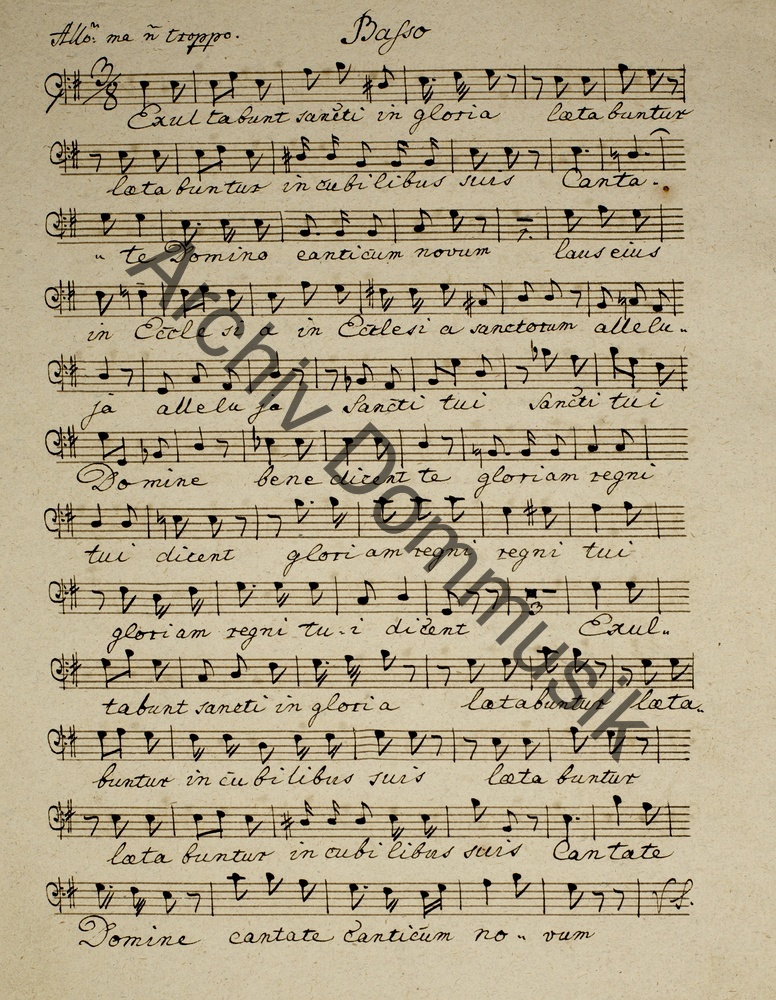 Allo: ma ñ troppo. Basso
3/8
Exultabunt sancti in gloria lætabuntur
læta buntur in cubilibus suis Canta-
" te Domino canticum novum laus eius
in Eccle si a in Ecclesi a sanctorum allelu-
ja allelu ja Sancti tui Sancti tui
Domine bene dicent te gloriam regni
tui dicent glori am regni regni tui
gloriam regni tu-i dicent Exul-
tabunt sancti in gloria lætabuntur læta-
buntur in cu bi libus suis læta buntur
læta buntur in cubi libus suis Cantate
Domine cantate Canticum no- vum
V S.
Archiv Dommusik